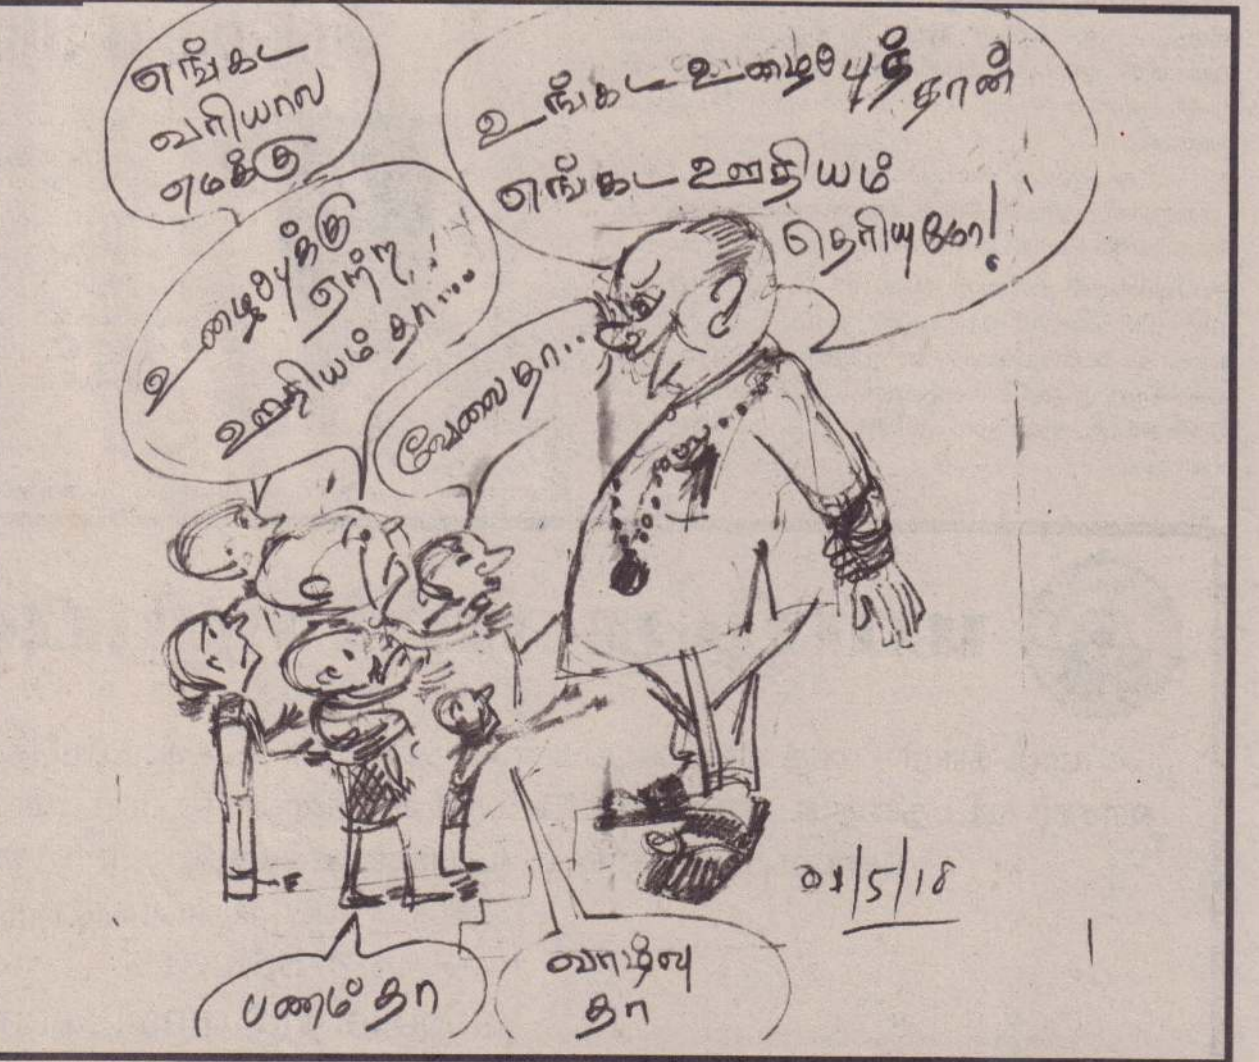 எங்கட
வரியால
எமக்கு
உழைப்புக்கு
ஏற்ற
ஊதியம் தா....
வேலை தா..
உங்கட உழைப்புத்தான்
எங்கட ஊதியம்
தெரியுமோ!
01/5/18
பணம் தா
வாழ்வு
தா